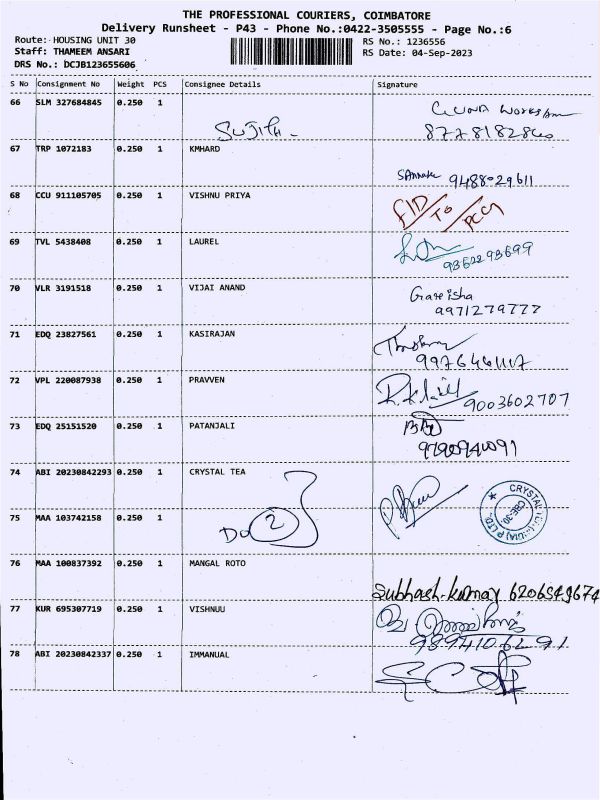 THE PROFESSIONAL COURIERS, COIMBATORE
Delivery Runsheet - P43 - Phone No.:0422-3505555 - Page No.:6
Route: HOUSING UNIT 30 RS No.: 1236556
Staff: THAMEEM ANSARI RS Date: 04-Sep-2023
DRS No.: DCJB123655606
S No Consignment No Weight PCS Consignee Details Signature
66 SLM 327684845 0.250 1
Sujith
67 TRP 1072183 0.250 1 KMHARD
9488029611
68 CCU 911105705 0.250 1 VISHNU PRIYA
69 TVL 5438408 0.250 1 LAUREL
9362293699
70 VLR 3191518 0.250 1 VIJAI ANAND
9971279777
71 EDQ 23827561 0.250 1 KASIRAJAN
72 VPL 220087938 0.250 1 PRAVVEN
9003602707
73 EDQ 25151520 0.250 1 PATANJALI
74 ABI 20230842293 0.250 1 CRYSTAL TEA
75 MAA 103742158 0.250 1
Do 2
76 MAA 100837392 0.250 1 MANGAL ROTO
Subhash kumar 6206549674
77 KUR 695307719 0.250 1 VISHNUU
78 ABI 20230842337 0.250 1 IMMANUAL